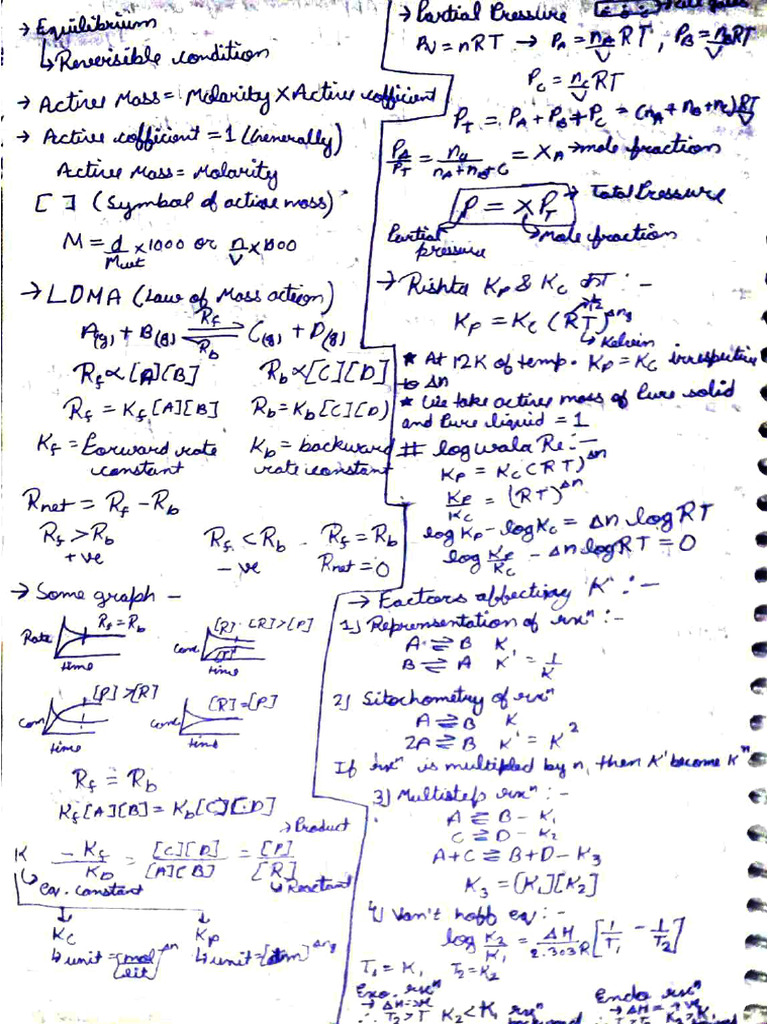 → Equilibrium
↳ Reversible condition
→ Active Mass = Molarity × Active cofficient
→ Active cofficient = 1 (Generally)
Active Mass = Molarity
[ ] (Symbol of active mass)
M = d/Mwt × 1000 or n/V × 1000
→ LOMA (Law of Mass action)
A(g) + B(g) ⇌ C(g) + D(g)
Rf
Rb
Rf ∝ [A][B] Rb ∝ [C][D]
Rf = Kf [A][B] Rb = Kb [C][D]
Kf = Forward rate constant
Kb = backward rate constant
Rnet = Rf - Rb
Rf > Rb Rf < Rb Rf = Rb
+ve -ve Rnet = 0
→ Some graph -
Rate Rf = Rb time
Conc. [R] [R] > [P] time
Con [P] > [R] time
Conc [R] = [P] time
Rf = Rb
Kf [A][B] = Kb [C][D]
K = Kf/Kb = [C][D]/[A][B] = [P]/[R]
→ Product
↳ Reactant
↳ Eq. constant
Kc Kp
↳ unit = [mol/lit]^Δn ↳ unit = [atm]^Δng
→ Partial Pressure
PV = nRT → PA = nA/V RT, PB = nB/V RT
PC = nC/V RT
PT = PA + PB + PC = (nA + nB + nC) RT/V
PA/PT = nA/nA+nB+C = XA → mole fraction
P = XPT → Total Pressure
Partial pressure → Mole fraction
→ Rishta Kp & Kc :-
Kp = Kc (RT)^Δng
↳ Kelvin
* At 12K of temp. Kp = Kc irrespective
to Δn
* We take active mass of Pure solid
and Pure liquid = 1
# log wala Re :-
Kp = Kc (RT)^Δn
Kp/Kc = (RT)^Δn
log Kp - log Kc = Δn log RT
log Kp/Kc - Δn log RT = 0
→ Factors affecting K :-
1) Reprensentation of rxⁿ :-
A ⇌ B K
B ⇌ A K' = 1/K
2) Sitochometry of rxⁿ
A ⇌ B K
2A ⇌ B K' = K²
If rxⁿ is multipled by n, then K' become Kⁿ
3) Multistep rxⁿ :-
A ⇌ B - K₁
C ⇌ D - K₂
A + C ⇌ B + D - K₃
K₃ = [K₁][K₂]
4) Van't hoff eq :-
log K₂/K₁ = ΔH/2.303R [1/T₁ - 1/T₂]
T₁ = K₁ T₂ = K₂
Exo. rxⁿ Endo rxⁿ
→ ΔH = -ve → ΔH = +ve
∴ T₂ > T K₂ < K₁ rxⁿ